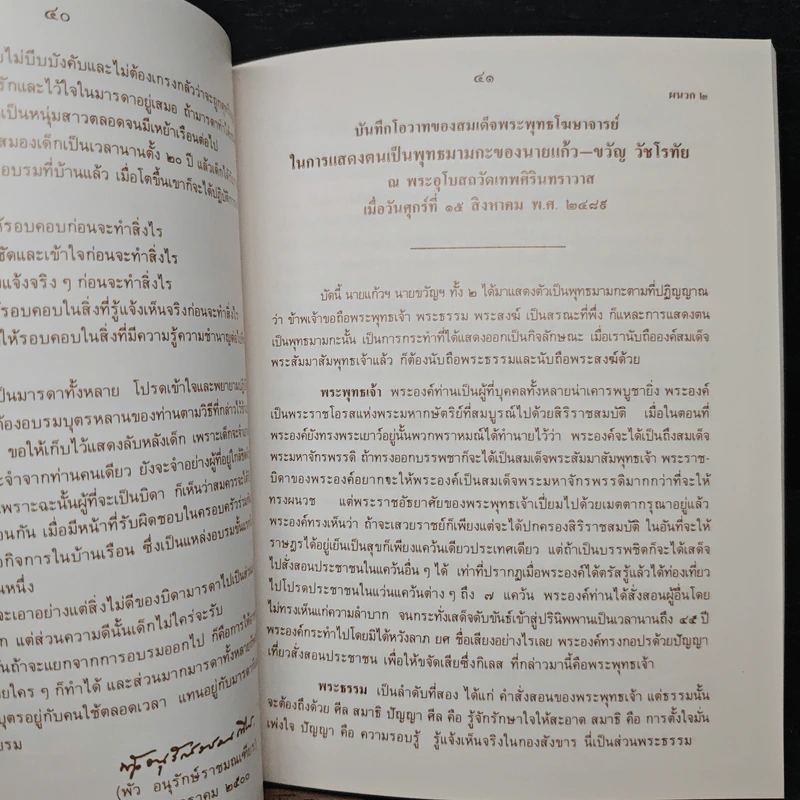 ๔๐
ไม่บีบบังคับและไม่ต้องเกรงกลัวว่าจะถูก
รักและไว้ใจในมารดาอยู่เสมอ ถ้ามารดา
เป็นหนุ่มสาวตลอดจนมีเหย้าเรือนต่อไป
สมองเด็กเป็นเวลานานตั้ง ๒๐ ปี แล้วเด็ก
บรมที่บ้านแล้ว เมื่อโตขึ้นเขาก็จะได้ปฏิบัติ
ห้รอบคอบก่อนจะทำสิ่งไร
ชัดและเข้าใจก่อนจะทำสิ่งไร
แจ้งจริง ๆ ก่อนจะทำสิ่งไร
ร้รอบคอบในสิ่งที่รู้แจ้งเห็นจริงก่อนจะทำสิ่งไร
ให้รอบคอบในสิ่งที่มีความรู้ความชำนาญ
เป็นมารดาทั้งหลาย โปรดเข้าใจและพยายาม
ต้องอบรมบุตรหลานของท่านตามวิธีที่กล่าวไว้
ขอให้เก็บไว้แสดงลับหลังเด็ก เพราะเด็กจะ
ะจำจากท่านคนเดียว ยังจะจำอย่างผู้ที่อยู่ใกล้ชิด
เพราะฉะนั้นผู้ที่จะเป็นบิดา ก็เห็นว่าสมควรจะได้
อนกัน เมื่อมีหน้าที่รับผิดชอบในครอบครัวร่วมกัน
กิจการในบ้านเรือน ซึ่งเป็นแหล่งอบรมชั้น
นหนึ่ง
จะเอาอย่างแต่สิ่งไม่ดีของบิดามารดาไปเป็น
ก แต่ส่วนความดีนั้นเด็กไม่ใคร่จะรับ
นถ้าจะแยกจากการอบรมออกไป ก็คือการให้
ยใคร ๆ ก็ทำได้ และส่วนมากมารดาทั้งหลาย
บุตรอยู่กับคนใช้ตลอดเวลา แทนอยู่กับมารดา
บรม
(พัว อนุรักษ์ราชมณเฑียร)
ราคม ๒๕๐๐
๔๑
ผนวก ๒
บันทึกโอวาทของสมเด็จพระพุทธโฆษาจารย์
ในการแสดงตนเป็นพุทธมามกะของนายแก้ว–ขวัญ วัชโรทัย
ณ พระอุโบสถวัดเทพศิรินทราวาส
เมื่อวันศุกร์ที่ ๑๕ สิงหาคม พ.ศ. ๒๔๘๙
บัดนี้ นายแก้วฯ นายขวัญฯ ทั้ง ๒ ได้มาแสดงตัวเป็นพุทธมามกะตามที่ปฏิญญาณ
ว่า ข้าพเจ้าขอถือพระพุทธเจ้า พระธรรม พระสงฆ์ เป็นสรณะที่พึ่ง ก็แหละการแสดงตน
เป็นพุทธมามกะนั้น เป็นการกระทำที่ได้แสดงออกเป็นกิจลักษณะ เมื่อเรานับถือองค์สมเด็จ
พระสัมมาสัมพุทธเจ้าแล้ว ก็ต้องนับถือพระธรรมและนับถือพระสงฆ์ด้วย
พระพุทธเจ้า พระองค์ท่านเป็นผู้ที่บุคคลทั้งหลายน่าเคารพบูชายิ่ง พระองค์
เป็นพระราชโอรสแห่งพระมหากษัตริย์ที่สมบูรณ์ไปด้วยสิริราชสมบัติ เมื่อในตอนที่
พระองค์ยังทรงพระเยาว์อยู่นั้นพวกพราหมณ์ได้ทำนายไว้ว่า พระองค์จะได้เป็นถึงสมเด็จ
พระมหาจักรพรรดิ ถ้าทรงออกบรรพชาก็จะได้เป็นสมเด็จพระสัมมาสัมพุทธเจ้า พระราช-
บิดาของพระองค์อยากจะให้พระองค์เป็นสมเด็จพระมหาจักรพรรดิมากกว่าที่จะให้
ทรงผนวช แต่พระราชอัธยาศัยของพระพุทธเจ้าเปี่ยมไปด้วยเมตตากรุณาอยู่แล้ว
พระองค์ทรงเห็นว่า ถ้าจะเสวยราชย์ก็เพียงแต่จะได้ปกครองสิริราชสมบัติ ในอันที่จะให้
ราษฎรได้อยู่เย็นเป็นสุขก็เพียงแคว้นเดียวประเทศเดียว แต่ถ้าเป็นบรรพชิตก็จะได้เสด็จ
ไปสั่งสอนประชาชนในแคว้นอื่น ๆ ได้ เท่าที่ปรากฏเมื่อพระองค์ได้ตรัสรู้แล้วได้ท่องเที่ยว
ไปโปรดประชาชนในแว่นแคว้นต่าง ๆ ถึง ๗ แคว้น พระองค์ท่านได้สั่งสอนผู้อื่นโดย
ไม่ทรงเห็นแก่ความลำบาก จนกระทั่งเสด็จดับขันธ์เข้าสู่ปรินิพพานเป็นเวลานานถึง ๔๕ ปี
พระองค์กระทำไปโดยมิได้หวังลาภ ยศ ชื่อเสียงอย่างไรเลย พระองค์ทรงกอปรด้วยปัญญา
เที่ยวสั่งสอนประชาชน เพื่อให้ขจัดเสียซึ่งกิเลส ที่กล่าวมานี้คือพระพุทธเจ้า
พระธรรม เป็นลำดับที่สอง ได้แก่ คำสั่งสอนของพระพุทธเจ้า แต่ธรรมนั้น
จะต้องถึงด้วย ศีล สมาธิ ปัญญา ศีล คือ รู้จักรักษาใจให้สะอาด สมาธิ คือ การตั้งใจมั่น
เพ่งใจ ปัญญา คือ ความรอบรู้ รู้แจ้งเห็นจริงในกองสังขาร นี่เป็นส่วนพระธรรม